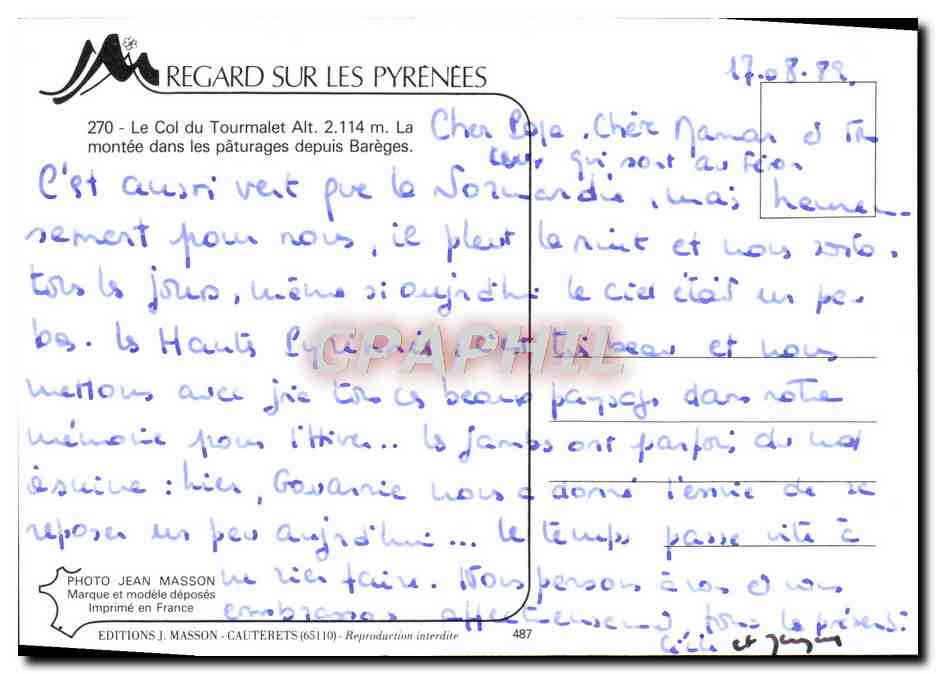 17.08.89.
REGARD SUR LES PYRÉNÉES
270 - Le Col du Tourmalet Alt. 2.114 m. La
montée dans les pâturages depuis Barèges.
Cher Papa, Chère Maman et
qui sont au
C'est aussi vert que la Normandie, mais heureu-
sement pour nous, il pleut la nuit et nous
tous les jours, même si aujourd'hui le ciel était un peu
bas. Les Hautes Pyrénées, c'est très beau et nous
CPAPHIL
mettons avec joie tous ces beaux paysages dans notre
mémoire pour l'Hiver... les jambes ont parfois du mal
à suivre : hier, Gavarnie nous a donné l'envie de se
reposer un peu aujourd'hui... le temps passe vite à
ne rien faire. Nous pensons à vous et vous
embrassons affectueusement, tous les présents.
Cécile et Jacques
PHOTO JEAN MASSON
Marque et modèle déposés
Imprimé en France
EDITIONS J. MASSON - CAUTERETS (65110) - Reproduction interdite
487